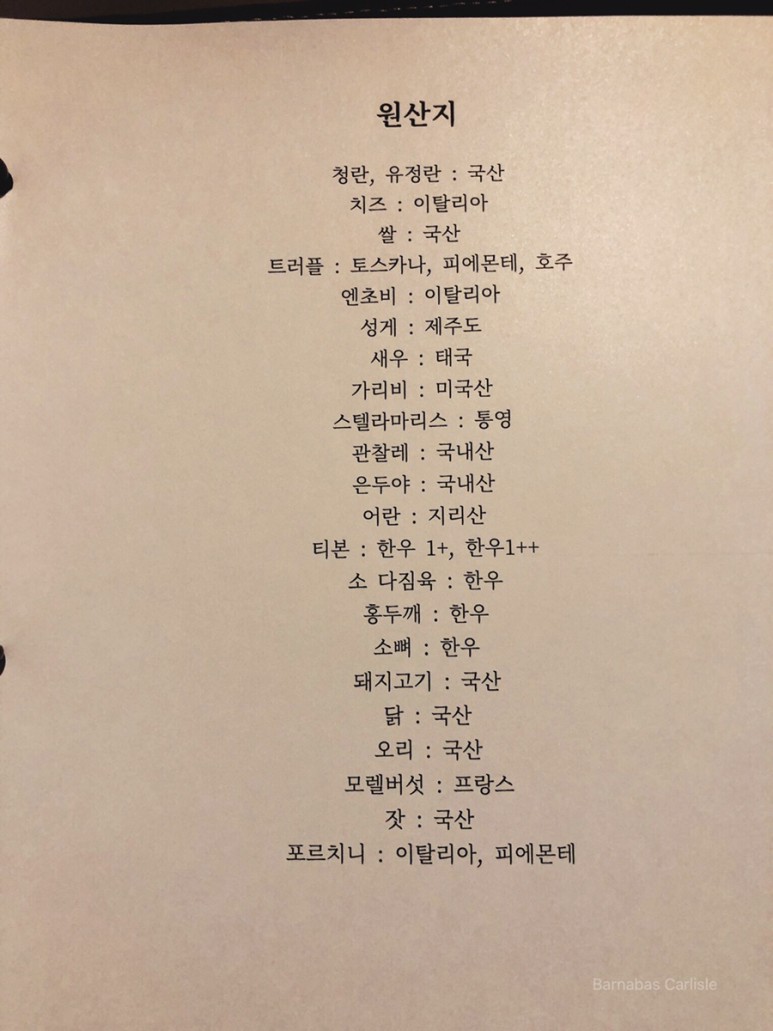 원산지
청란, 유정란 : 국산
치즈 : 이탈리아
쌀 : 국산
트러플 : 토스카나, 피에몬테, 호주
엔초비 : 이탈리아
성게 : 제주도
새우 : 태국
가리비 : 미국산
스텔라마리스 : 통영
관찰레 : 국내산
은두야 : 국내산
어란 : 지리산
티본 : 한우 1+, 한우1++
소 다짐육 : 한우
홍두깨 : 한우
소뼈 : 한우
돼지고기 : 국산
닭 : 국산
오리 : 국산
모렐버섯 : 프랑스
잣 : 국산
포르치니 : 이탈리아, 피에몬테
Barnabas Carlisle